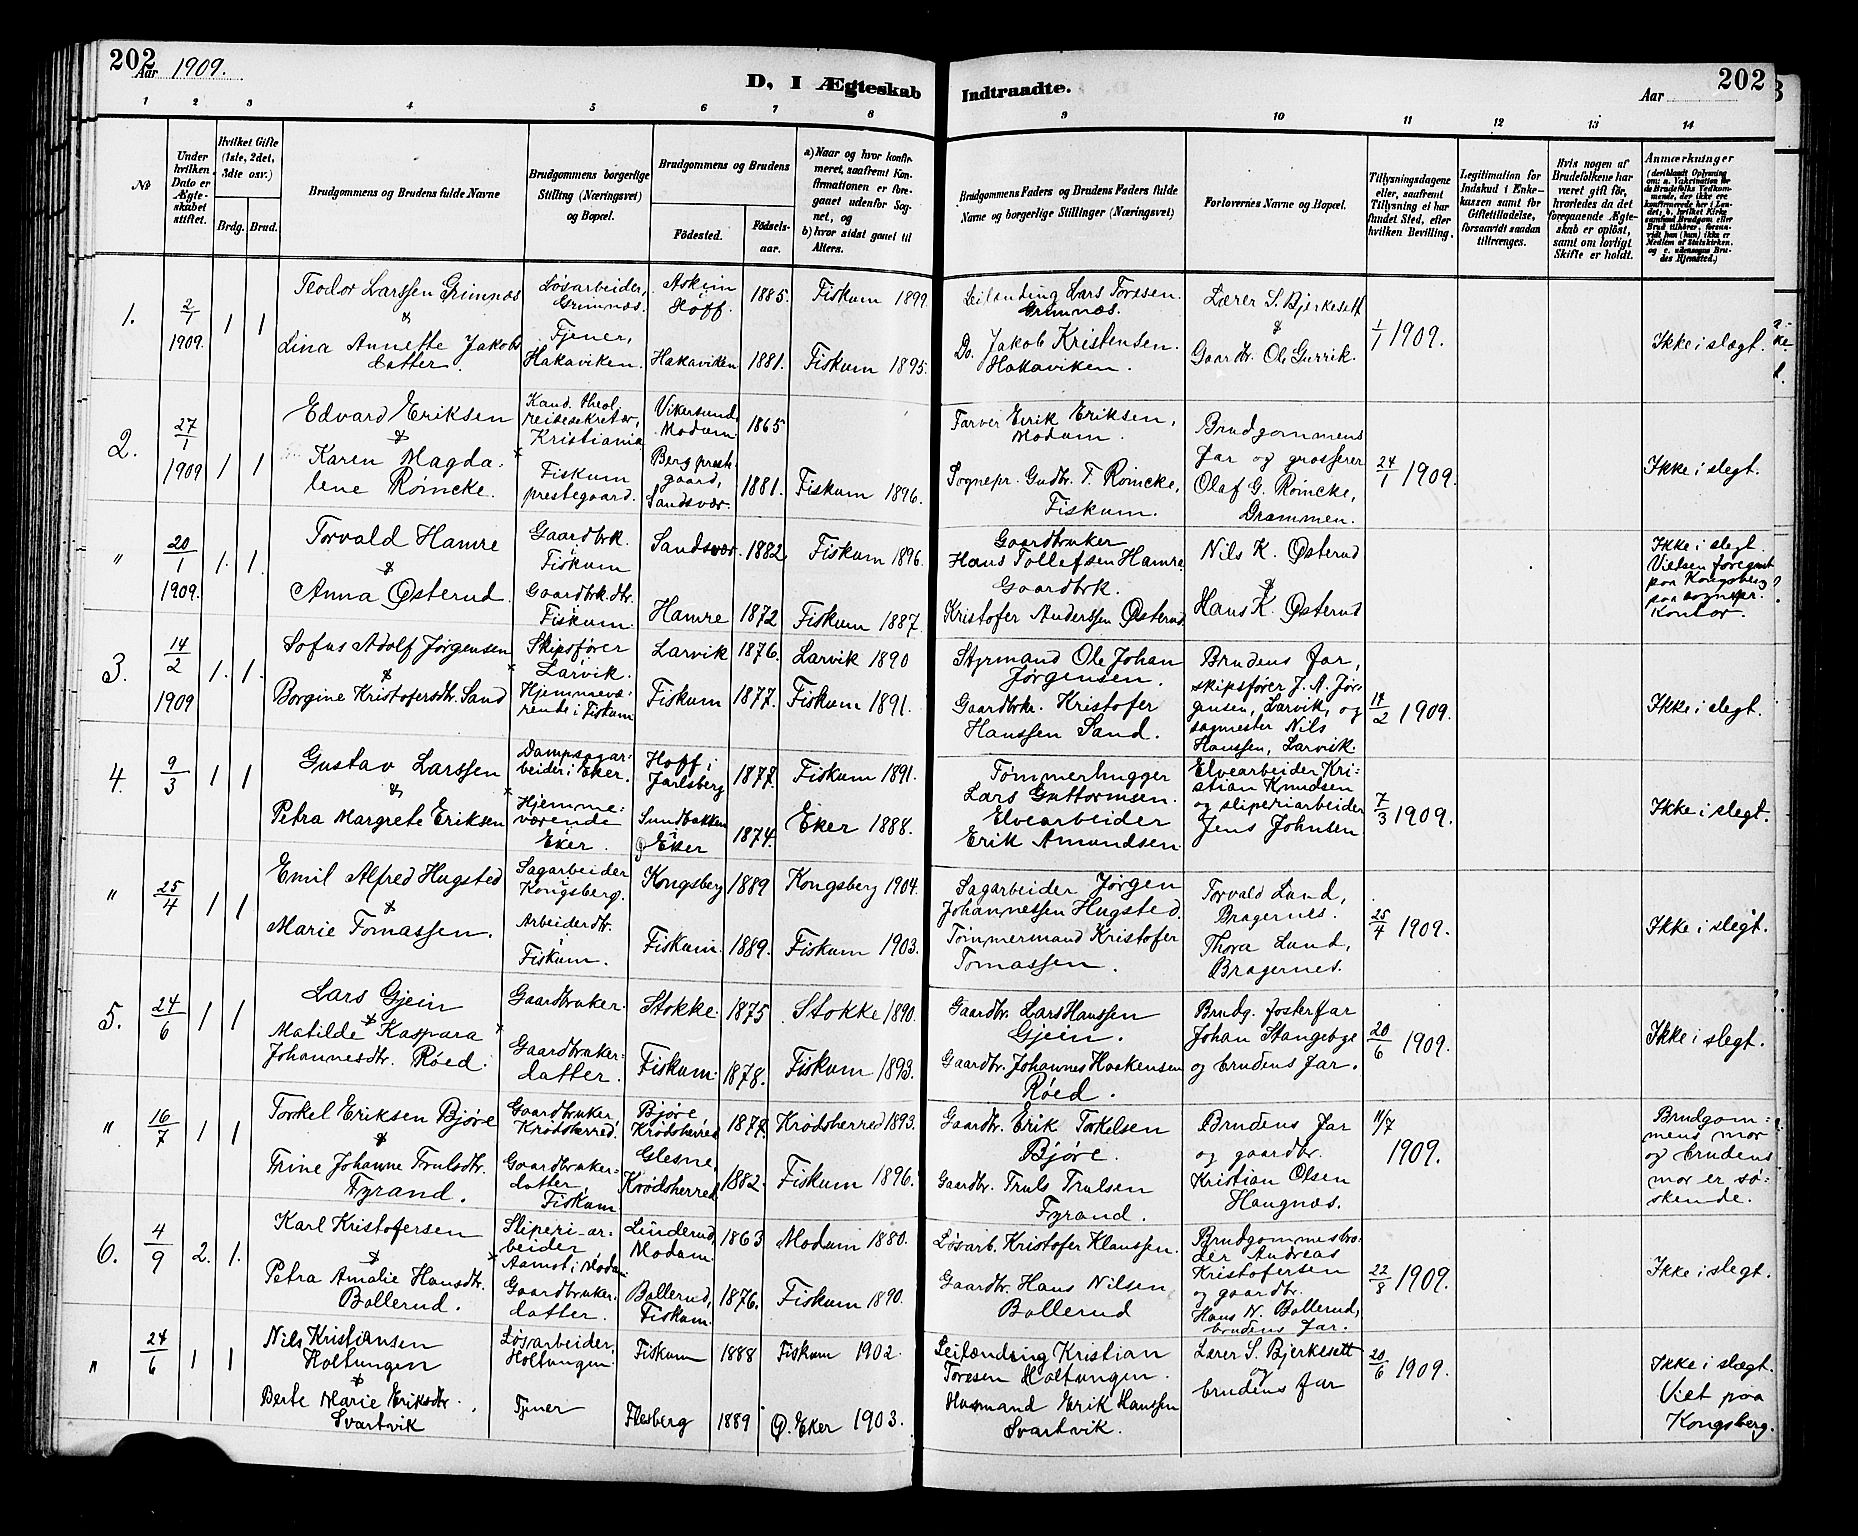 202
Aar 1909.
D, I Ægteskab Indtraadte.
Aar
202
1 2 3 4 5 6 7 8 9 10 11 12 13 14
No
Under hvilken Dato er Ægteskabet stiftet.
Hvilket Gifte (1ste, 2det, 3die osv.)
Brdg. Brud.
Brudgommens og Brudens fulde Navne
Brudgommens borgerlige Stilling (Næringsvei) og Bopæl.
Brudgommens og Brudens
Födested.
Födselsaar.
a) Naar og hvor konfirmeret, saafremt Konfirmationen er foregaaet udenfor Sognet, og
b) hvor sidst gaaet til Alters.
Brudgommens Faders og Brudens Faders fulde Navne og borgerlige Stillinger (Næringsvei)
Forlovernes Navne og Bopæl.
Tillysningsdagene eller, saafremt Tillysning ei har fundet Sted, efter hvilken Bevilling.
Legitimation for Indskud i Enkekassen samt for Giftetilladelse, forsaavidt saadan tiltrenges.
Hvis nogen af Brudefolkene har været gift för, hvorledes da det foregaaende Ægteskab er oplöst, samt om lovligt Skifte er holdt.
Anmærkninger
1. 2/1 1909. 1 1
Teodor Larssen Grimnæs
&
Lina Annette Jakobsdatter.
Løsarbeider, Grimnæs.
Tjener, Hakaviken.
Askim Høff. 1885. Fiskum 1899.
Hakaviken 1881. Fiskum 1895.
Leilending Lars Toresen. Grimnæs.
Do. Jakob Kristensen. Hakaviken.
Lærer S. Bjerkesett
&
Gaardbr. Ole Gurrik.
1/1 1909.
Ikke i slægt.
2. 27/1 1909 1 1
Edvard Eriksen
&
Karen Magdalene Röincke.
Kand. theol, reisesekretær, Kristiania
Fiskum prestegaard.
Vikersund Modum. 1865
Berg prestegaard, Sandsvær. 1881. Fiskum 1896.
Farver Erik Eriksen, Modum.
Sognepr. Gudbr. T. Röincke, Fiskum.
Brudgommens far og grosserer Olaf G. Röincke, Drammen.
24/1 1909.
Ikke i slegt.
" 20/1 1909. 1. 1.
Torvald Hamre
&
Anna Østerud.
Gaardbrk. Fiskum
Gaardbrk.dtr. Fiskum.
Sandsvær. 1882. Fiskum 1896.
Hamre 1872 Fiskum 1887.
Gaardbruker Hans Tollefsen Hamre.
Gaardbrk. Kristofer Anderssen Østerud
Nils K. Østerud
&
Hans K. Østerud
Ikke i slegt. Vielsen foregaat paa Kongsberg paa sognepr. Kontor.
3. 14/2 1909 1. 1.
Sofus Adolf Jørgensen
&
Borgine Kristofersdtr. Sand
Skipsfører Larvik.
Hjemmeværende i Fiskum
Larvik 1876. Larvik 1890
Fiskum 1877. Fiskum 1891.
Styrmand Ole Johan Jørgensen.
Gaardbrkr. Kristofer Hanssen Sand.
Brudens far, skipsfører J. A. Jørgensen, Larvik, og sagmester Nils Hanssen, Larvik.
14/2 1909.
Ikke i slegt.
4. 9/3 1 1
Gustav Larssen
&
Petra Margrete Eriksen
Dampsagarbeider i Eker.
Hjemmeværende Eker.
Hoff i Jarlsberg 1877. Fiskum 1891.
Sundbakken Ø Eker 1874. Eker 1888.
Tømmerhugger Lars Guttormsen.
Elvearbeider Erik Amundsen
Elvearbeider Kristian Knudsen og sliperiarbeider Jens Johnsen
7/3 1909.
Ikke i slegt.
" 25/4 1 1
Emil Alfred Hugsted
&
Marie Tomassen.
Sagarbeider Kongsberg.
Arbeiderdtr. Fiskum.
Kongsberg 1889 Kongsberg 1904.
Fiskum. 1889. Fiskum 1903.
Sagarbeider Jørgen Johannessen Hugsted.
Tømmermand Kristofer Tomassen.
Torvald Lund, Bragernes.
Thora Lund, Bragernes.
25/4 1909.
Ikke i slegt.
5. 24/6 1 1
Lars Gjein
&
Matilde Kaspara Johannesdtr. Røed.
Gaardbruker.
Gaardbrukerdatter.
Stokke. 1875 Stokke 1890.
Fiskum. 1878. Fiskum 1893.
Gaardbr. Lars Hanssen Gjein.
Gaardbr. Johannes Haakensen Røed.
Brudg. fosterfar Johan Stangeby og brudens far.
20/6 1909.
Ikke i slegt.
" 16/7 1 1
Torkel Eriksen Bjøre
&
Trine Johanne Trulsdtr. Fyrand.
Gaardbruker Krødsherred.
Gaardbrukerdatter, Fiskum
Bjøre, Krødsherred 1877. Krødsherred 1893.
Glesne, Krødsherred 1882. Fiskum 1896.
Gaardbr. Erik Torkelsen Bjøre.
Gaardbr. Truls Trulsen Fyrand.
Brudens far og gaardbr. Kristian Olsen Haugnæs.
11/7 1909.
Brudgommens mor og brudens mor er søskende.
6. 4/9 2. 1.
Karl Kristofersen
&
Petra Amalie Hansdtr. Bollerud.
Sliperi-arbeider Aamot i Modum
Gaardbrukerdatter.
Linderud Modum 1863 Modum 1880.
Bollerud, Fiskum. 1876. Fiskum 1890.
Løsarb. Kristofer Klaussen.
Gaardbr. Hans Nilsen Bollerud
Brudgommes broder Andreas Kristofersen og gaardbr. Hans N. Bollerud, brudens far.
22/8 1909.
Ikke i slegt.
" 24/6 1 1
Nils Kristiansen Holtungen
&
Berte Marie Eriksdtr. Svartvik
Løsarbeider, Holtungen.
Tjener
Fiskum 1888 Fiskum 1902.
Flesberg 1889 Ø. Eker 1903.
Leilending Kristian Toresen Holtungen.
Husmand Erik Hanssen Svartvik.
Lærer S. Bjerkesett og brudens far
20/6 1909.
Ikke i slægt. Viet paa Kongsberg.